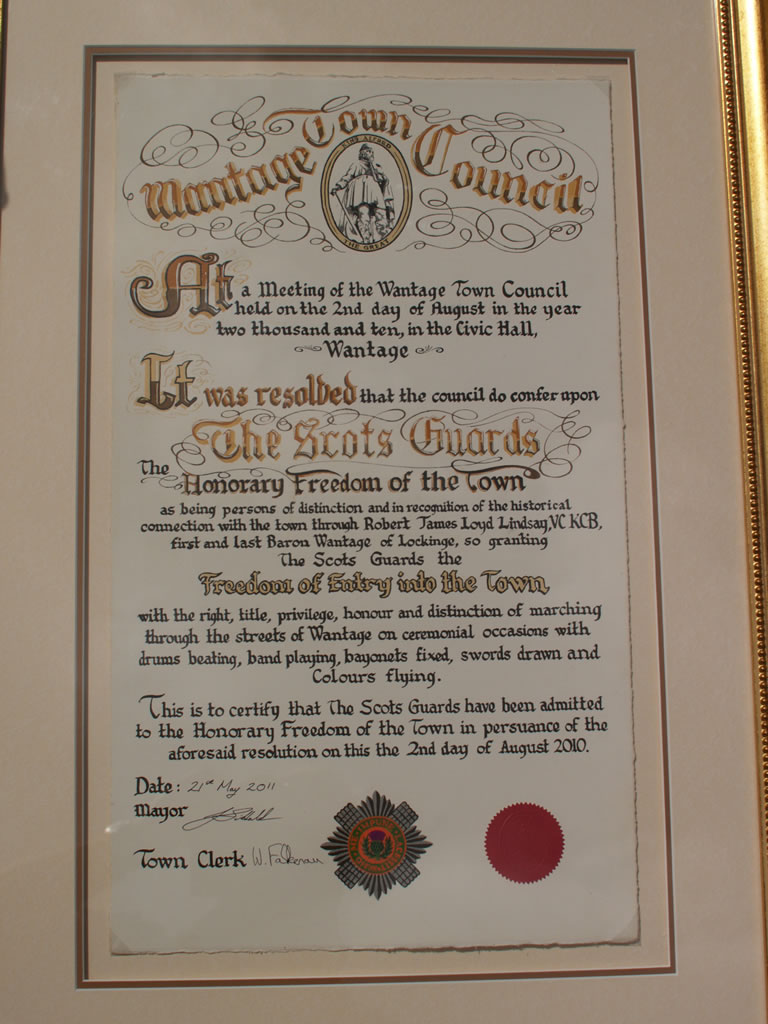 Wantage Town Council
KING ALFRED
THE GREAT
At a Meeting of the Wantage Town Council
held on the 2nd day of August in the year
two thousand and ten, in the Civic Hall,
Wantage
It was resolved that the council do confer upon
The Scots Guards
The Honorary Freedom of the Town
as being persons of distinction and in recognition of the historical
connection with the town through Robert James Loyd Lindsay, VC KCB,
first and last Baron Wantage of Lockinge, so granting
The Scots Guards the
Freedom of Entry into the Town
with the right, title, privilege, honour and distinction of marching
through the streets of Wantage on ceremonial occasions with
drums beating, band playing, bayonets fixed, swords drawn and
Colours flying.
This is to certify that The Scots Guards have been admitted
to the Honorary Freedom of the Town in persuance of the
aforesaid resolution on this the 2nd day of August 2010.
Date: 21st May 2011
Mayor
Town Clerk W. Falkenau